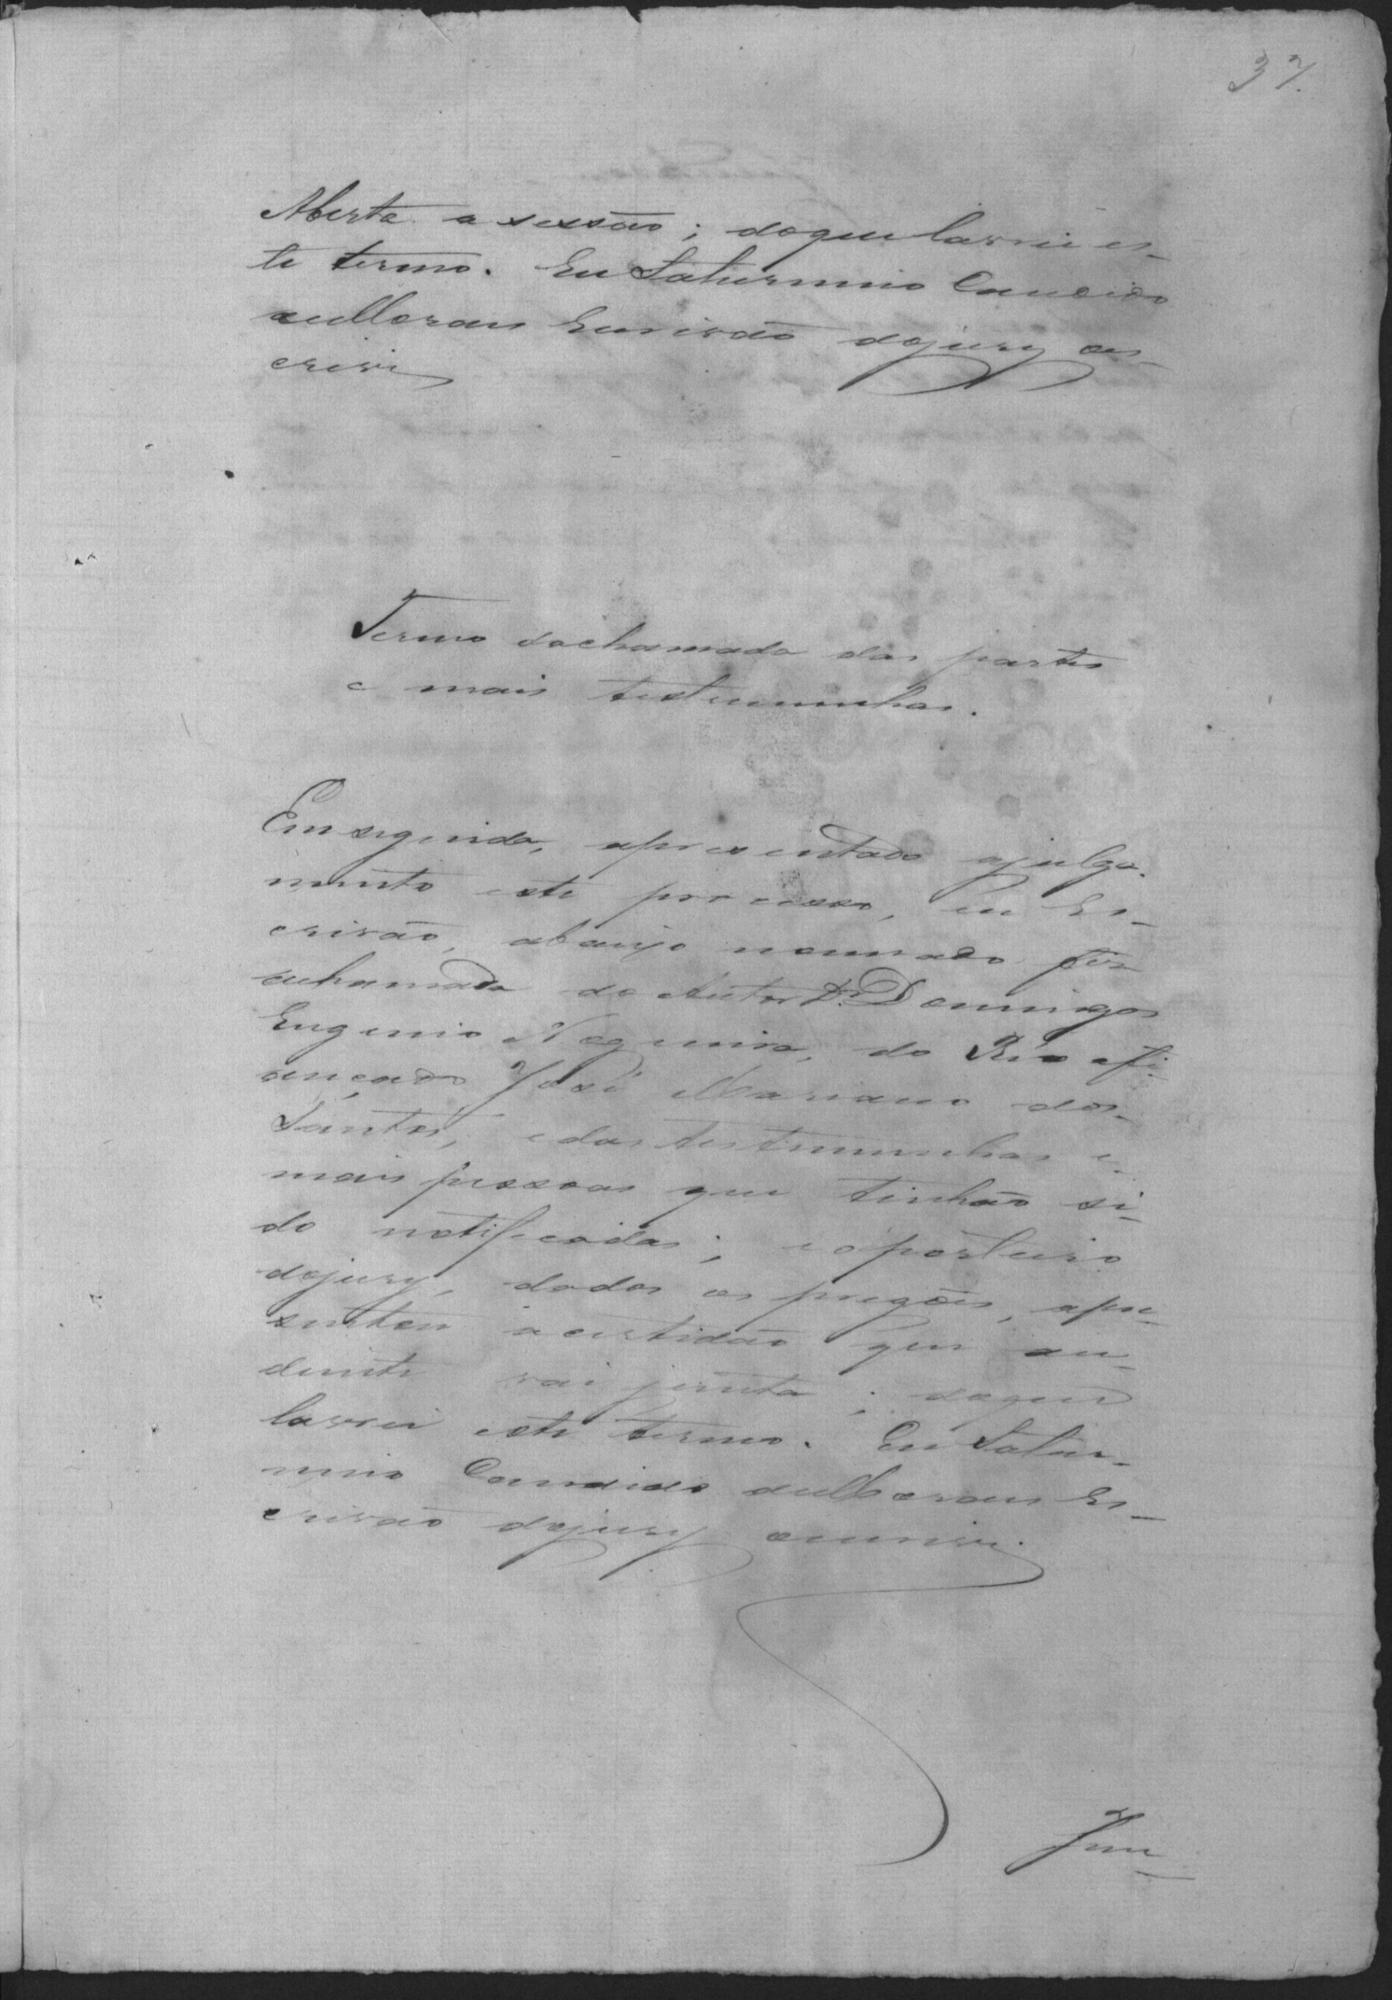 37.
Aberta a sessão; doque lavrei es-
te termo. Eu Saturnino Candido
de Moraes Escrivão do jury es-
crivi
Termo da chamada das partes
e mais testemunhas.
Em seguida, apresentado a julga-
mento este processo, eu Es-
crivão, abaixo nomeado fiz
achamada do Autor Dr. Domingos
Eugenio Nogueira, do Réo afi-
ançado José Mariano dos
Santos, e das testemunhas e
mais pessoas que tinhão si-
do notificadas; e o porteiro
do jury, dados os pregões, apre-
sentou a certidão que a-
diante vai junta; do que
lavrei este termo. Eu Satur-
nino Candido de Moraes Es-
crivão do jury escrivi.
Jun-